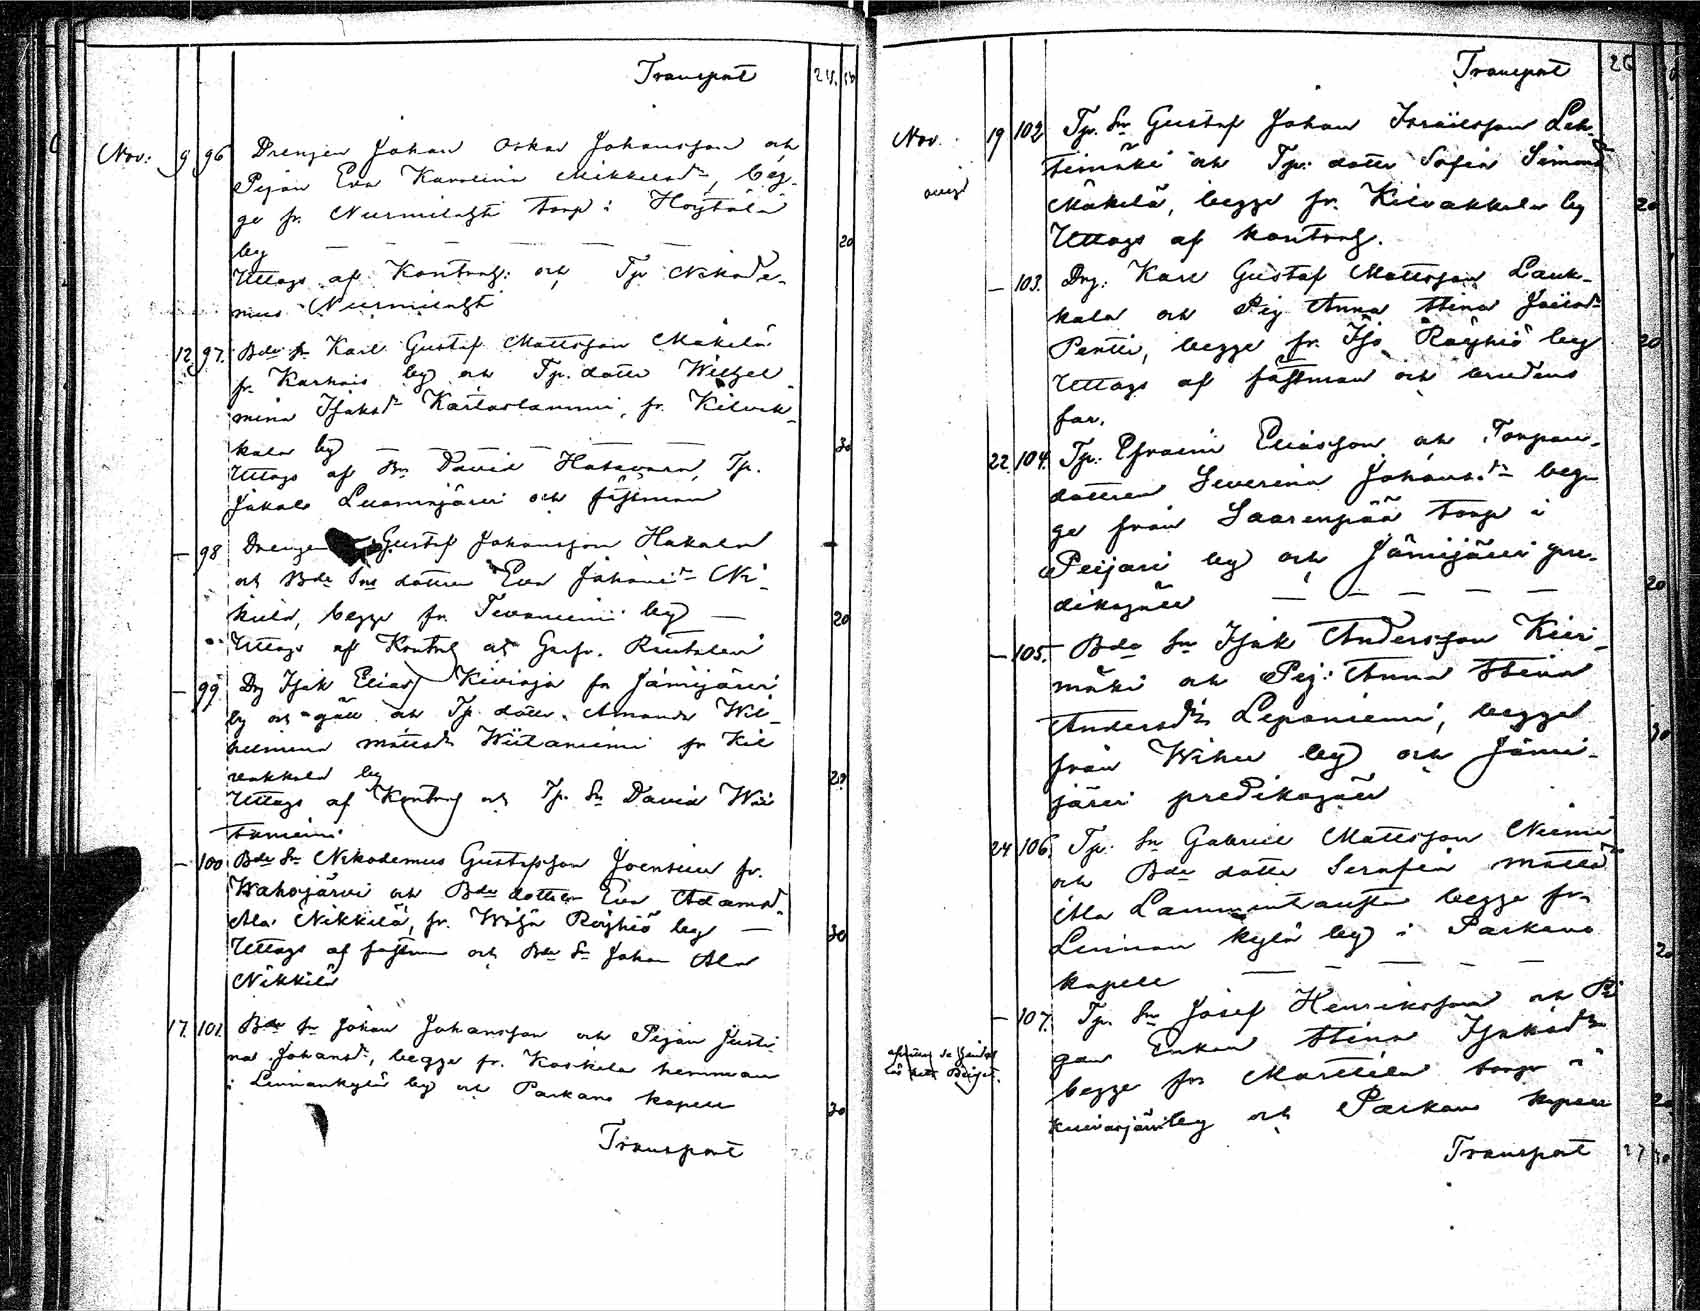 Transport 24.
Nov: 9 96 Drengen Johan Oskar Johansson och
Pigan Eva Karolina Mikkelsdr, beg-
ge fr. Nurmilahti torp i Höytölä
by — — — — — — 20
Uttags af Kontrah: och Tp Nikode-
mus Nurmilahti
12 97. Bde Sn Karl Gustaf Mattsson Mäkelä
fr. Karhois by och Tp. dottr Wilhel-
mina Isaksdr Kartastammi, fr. Kilvak-
kala by — — — — — 20
Uttags af Bn David Hatavara, Tp.
Jakob Luomajärvi och fästman
— 98 Drengen Gustaf Johansson Hakala
och Bde Sns dottren Eva Johansdr Ni-
kula, begge fr. Tevaniemi by — 20
Uttags af Kontrah och Gusf. Rautalin
— 99 Drg Isak Elias Kivioja fr Jämijärvi
by och gäll och Tp dottr. Amanda Wil-
helmina Mattsdr Wiitaniemi fr Kil
vakkala by 20
Uttags af Kontrah och Tp. Sn David Wii
taniemi
— 100 Bde Sn Nikodemus Gustafsson Joensuu fr.
Wahojärvi och Bde dottren Eva Adamsd.
Ala Nikkilä, fr. Röyhiö by — 20
Uttags af fästm och Bde Sn Johan Ala
Nikkilä
17. 101. Bde Sn Johan Johansson och Pigan Justi
na Johansdr, begge fr. Koskela hemman
i Linnankylä by och Parkano kapell 20
Transport 26
Transport 26
Nov. 19 102 Tp. Sn Gustaf Johan Israelsson Leh-
timäki och Tp: dottr Sofia Simonsdr
Mäkelä, begge fr. Kilvakkala by 20
Uttags af kontrah.
— 103. Drg: Karl Gustaf Mattsson Lauk-
kala och Pig Anna Stina Joelsdr
Pentti, begge fr. Iso Röyhiö by 20
Uttags af fästman och brudens
far.
22. 104. Tp: Efraim Eliasson och Torpare-
dottren Severina Johansdr beg-
ge från Saarenpää torp i
Peijari by och Jämijärvi pre-
dikogäll — — — — — 20
— 105. Bde Sn Isak Andersson Kieri-
mäki och Pig: Anna Stina
Andersdr Lepäniemi, begge
från Wihu by och Jämi-
järvi predikogäll
24 106. Tp. Sn Gabriel Mattsson Niemi
och Bde dottr Serafia Mattsdr
Ala Lammintausta begge fr.
Linnan kylä by i Parkano
kapell — — — — — 20
— 107. Tp. Sn Josef Henriksson och Pi
gan Enkan Stina Isaksdr
begge fr Marttila torp i
Kuivasjärvi by och Parkano kapell 20
Transport 27